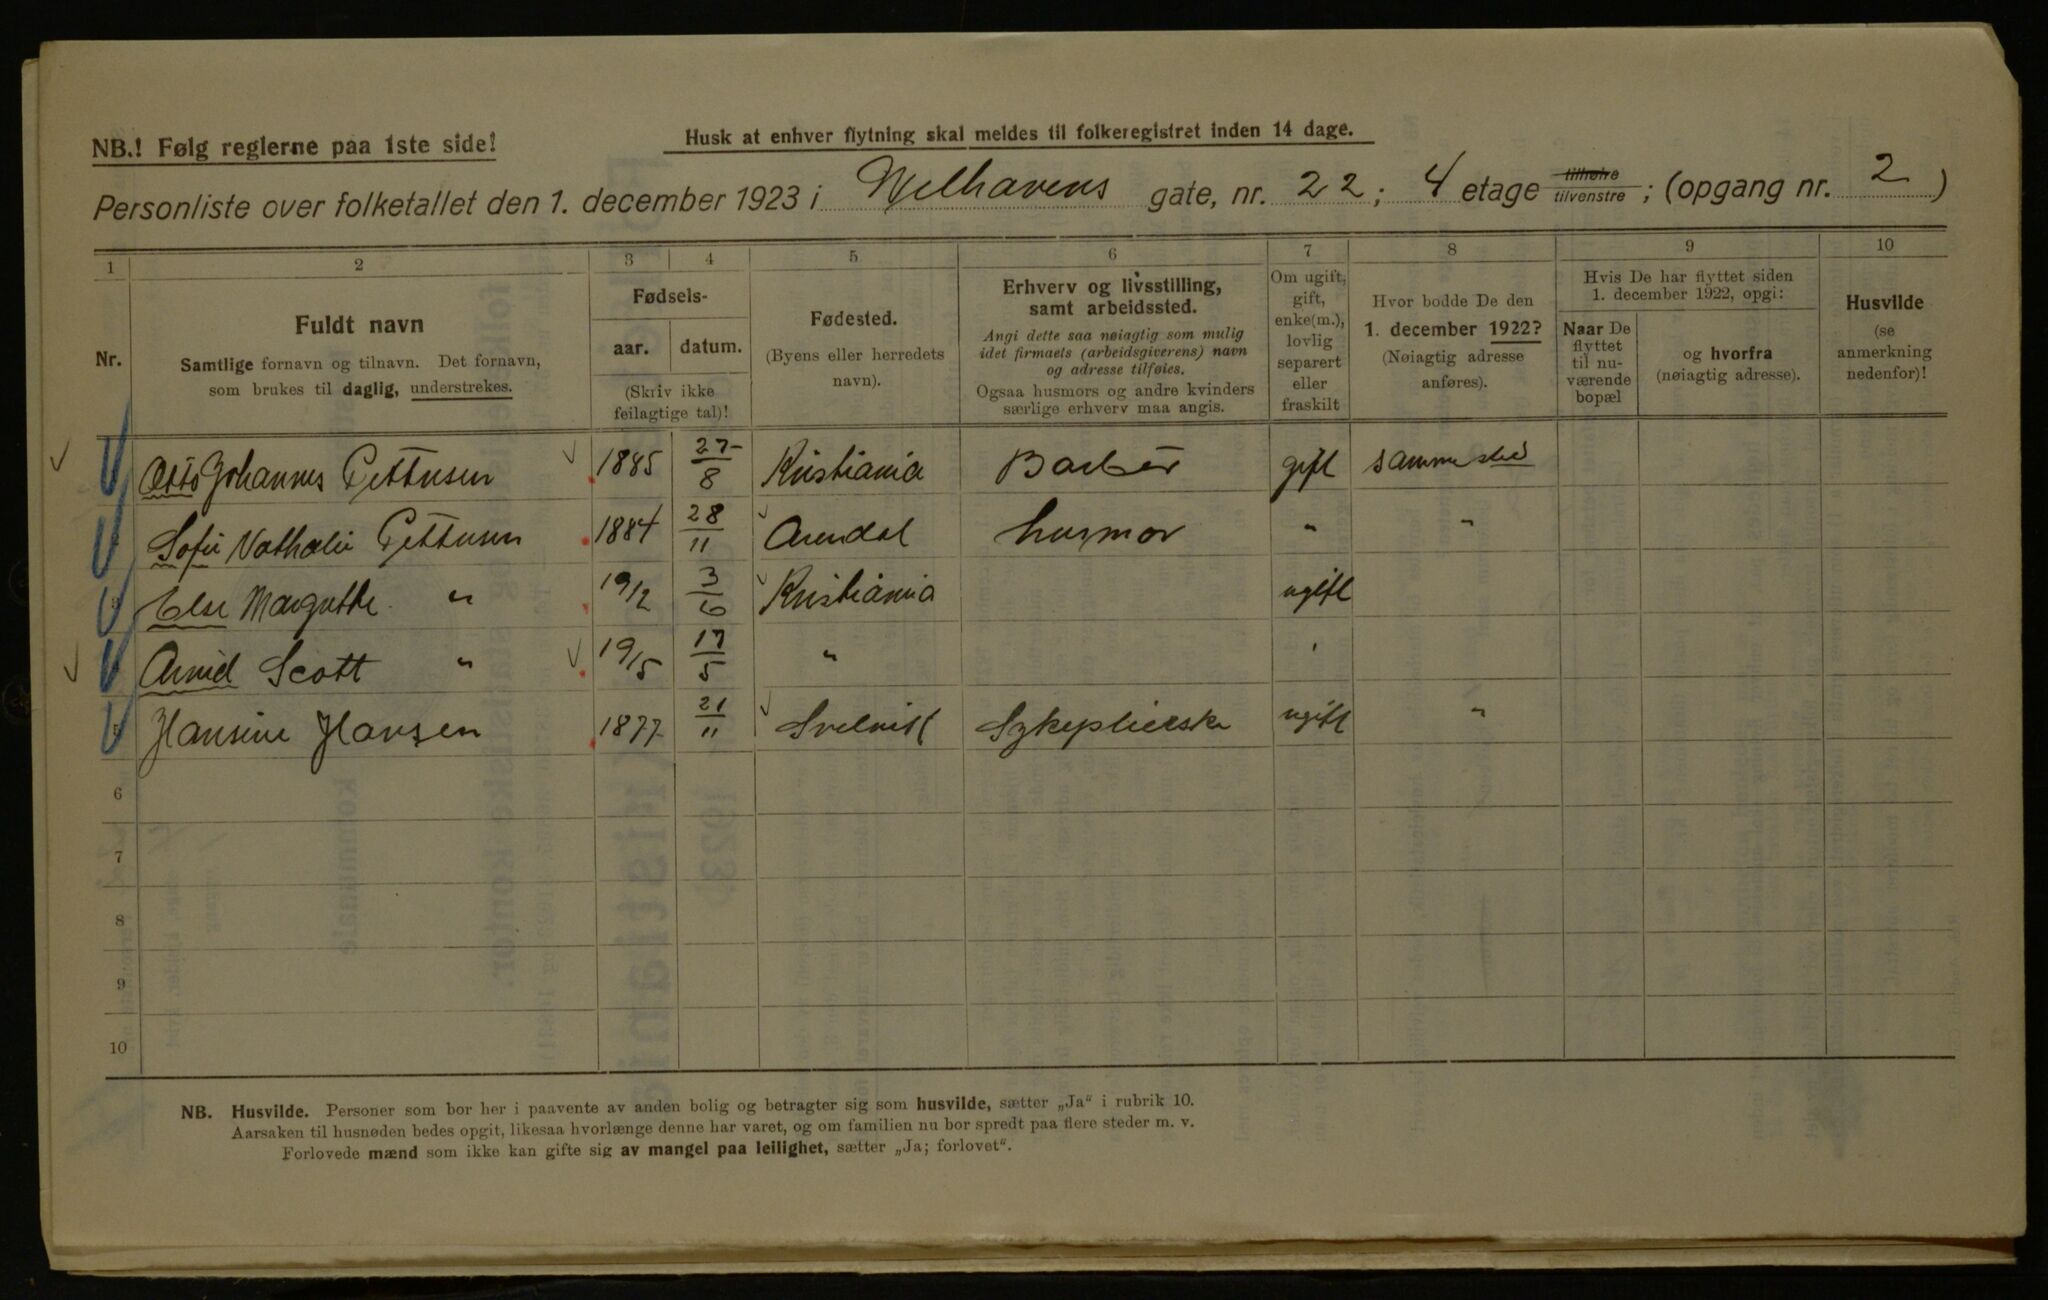 NB.! Følg reglerne paa 1ste side!
Husk at enhver flytning skal meldes til folkeregistret inden 14 dage.
Personliste over folketallet den 1. december 1923 i Welhavens gate, nr. 22; 4 etage tilhøire tilvenstre; (opgang nr. 2)
1 2 3 4 5 6 7 8 9 10
Nr.
Fuldt navn
Samtlige fornavn og tilnavn. Det fornavn,
som brukes til daglig, understrekes.
Fødsels-
aar. datum.
(Skriv ikke
feilagtige tal)!
Fødested.
(Byens eller herredets
navn).
Erhverv og livsstilling,
samt arbeidssted.
Angi dette saa nøiagtig som mulig
idet firmaets (arbeidsgiverens) navn
og adresse tilføies.
Ogsaa husmors og andre kvinders
særlige erhverv maa angis.
Om ugift,
gift,
enke(m.),
lovlig
separert
eller
fraskilt
Hvor bodde De den
1. december 1922?
(Nøiagtig adresse
anføres).
Hvis De har flyttet siden
1. december 1922, opgi:
Naar De
flyttet
til nu-
værende
bopæl
og hvorfra
(nøiagtig adresse).
Husvilde
(se
anmerkning
nedenfor)!
Otto Johannes Pettersen 1885 27/8 Kristiania Barber gift samme sted
Sofie Nathalie Pettersen 1884 28/11 Arendal husmor " "
Else Margrethe " 19/12 3/6 Kristiania ugift
Arvid Scott " 19/15 17/5 " "
Hansine Hansen 1877 21/11 Svelvik Sykepleierske ugift "
6
7
8
9
10
NB. Husvilde. Personer som bor her i paavente av anden bolig og betragter sig som husvilde, sætter „Ja" i rubrik 10.
Aarsaken til husnøden bedes opgit, likesaa hvorlænge denne har varet, og om familien nu bor spredt paa flere steder m. v.
Forlovede mænd som ikke kan gifte sig av mangel paa leilighet, sætter „Ja; forlovet".